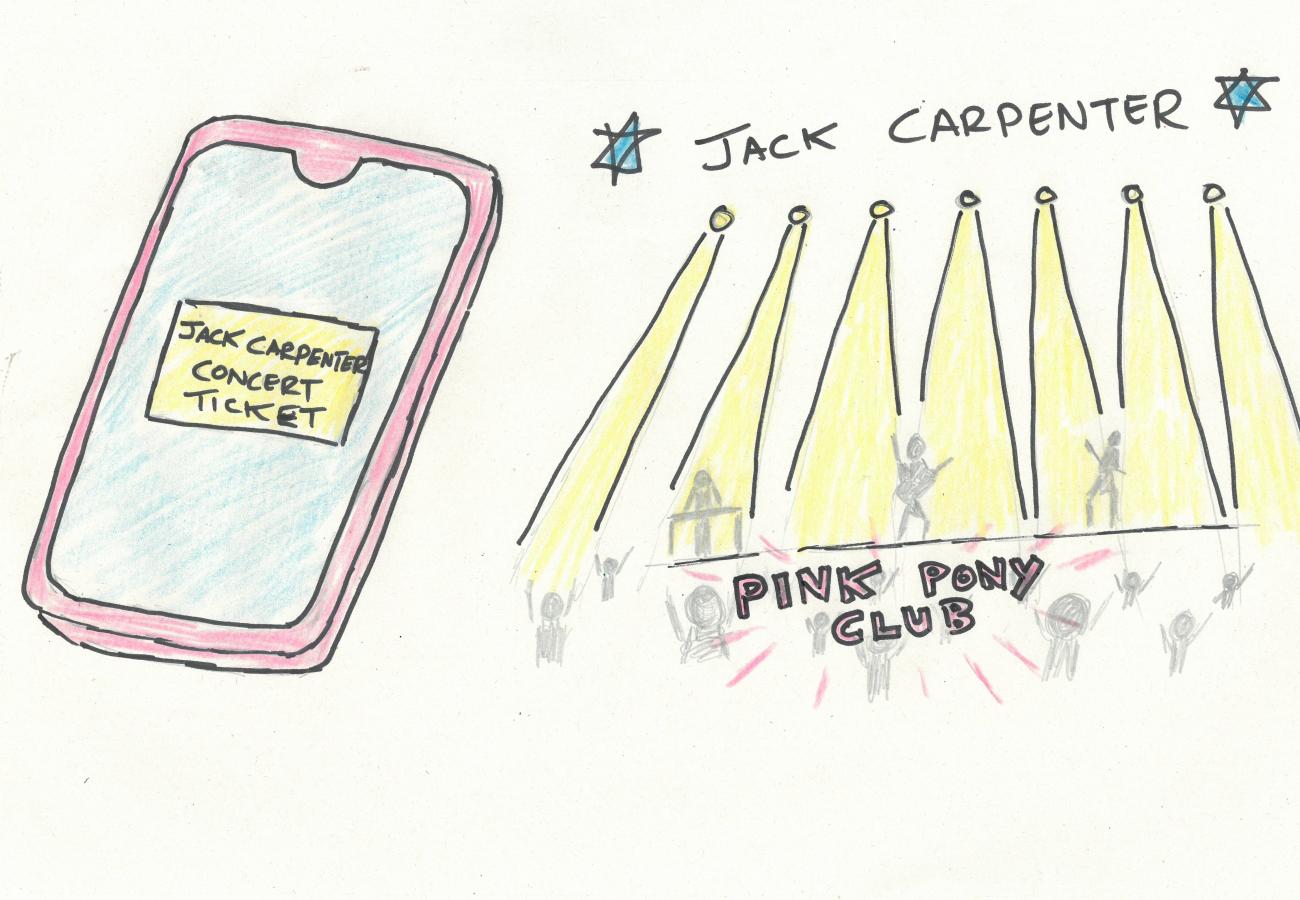 JACK CARPENTER
CONCERT
TICKET
JACK CARPENTER
PINK PONY
CLUB